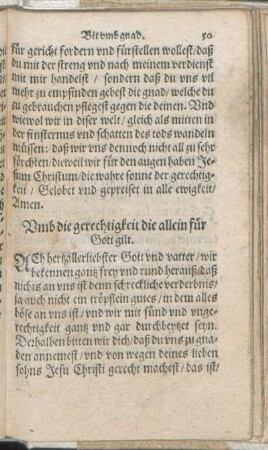 Bit vmb gnad. 50
für gericht fordern vnd fürstellen wollest/daß
du mit der streng vnd nach meinem verdienst
mit mir handelst / sondern daß du vns vil
mehr zu empfinden gebest die gnad/welche du
zu gebrauchen pflegest gegen die deinen. Vnd
wiewol wir in diser welt/gleich als mitten in
der finsternus vnd schatten des tods wandeln
müssen: daß wir vns dennoch nicht all zu sehr
förchten/dieweil wir für den augen haben Je-
sum Christum/die wahre sonne der gerechtig-
keit / Gelobet vnd gepreiset in alle ewigkeit/
Amen.
Vmb die gerechtigkeit die allein für
Gott gilt.
ACh hertzallerliebster Gott vnd vatter/wir
bekennen gantz frey vnd rund herauß/daß
nichts an vns ist denn schreckliche verderbnis/
ja auch nicht ein tröpflein gutes/in dem alles
böse an vns ist/vnd wir mit sünd vnd vnge-
rechtigkeit gantz vnd gar durchbeytzet seyn.
Derhalben bitten wir dich/daß du vns zu gna-
den annemest/vnd von wegen deines lieben
sohns Jesu Christi gerecht machest/das ist/